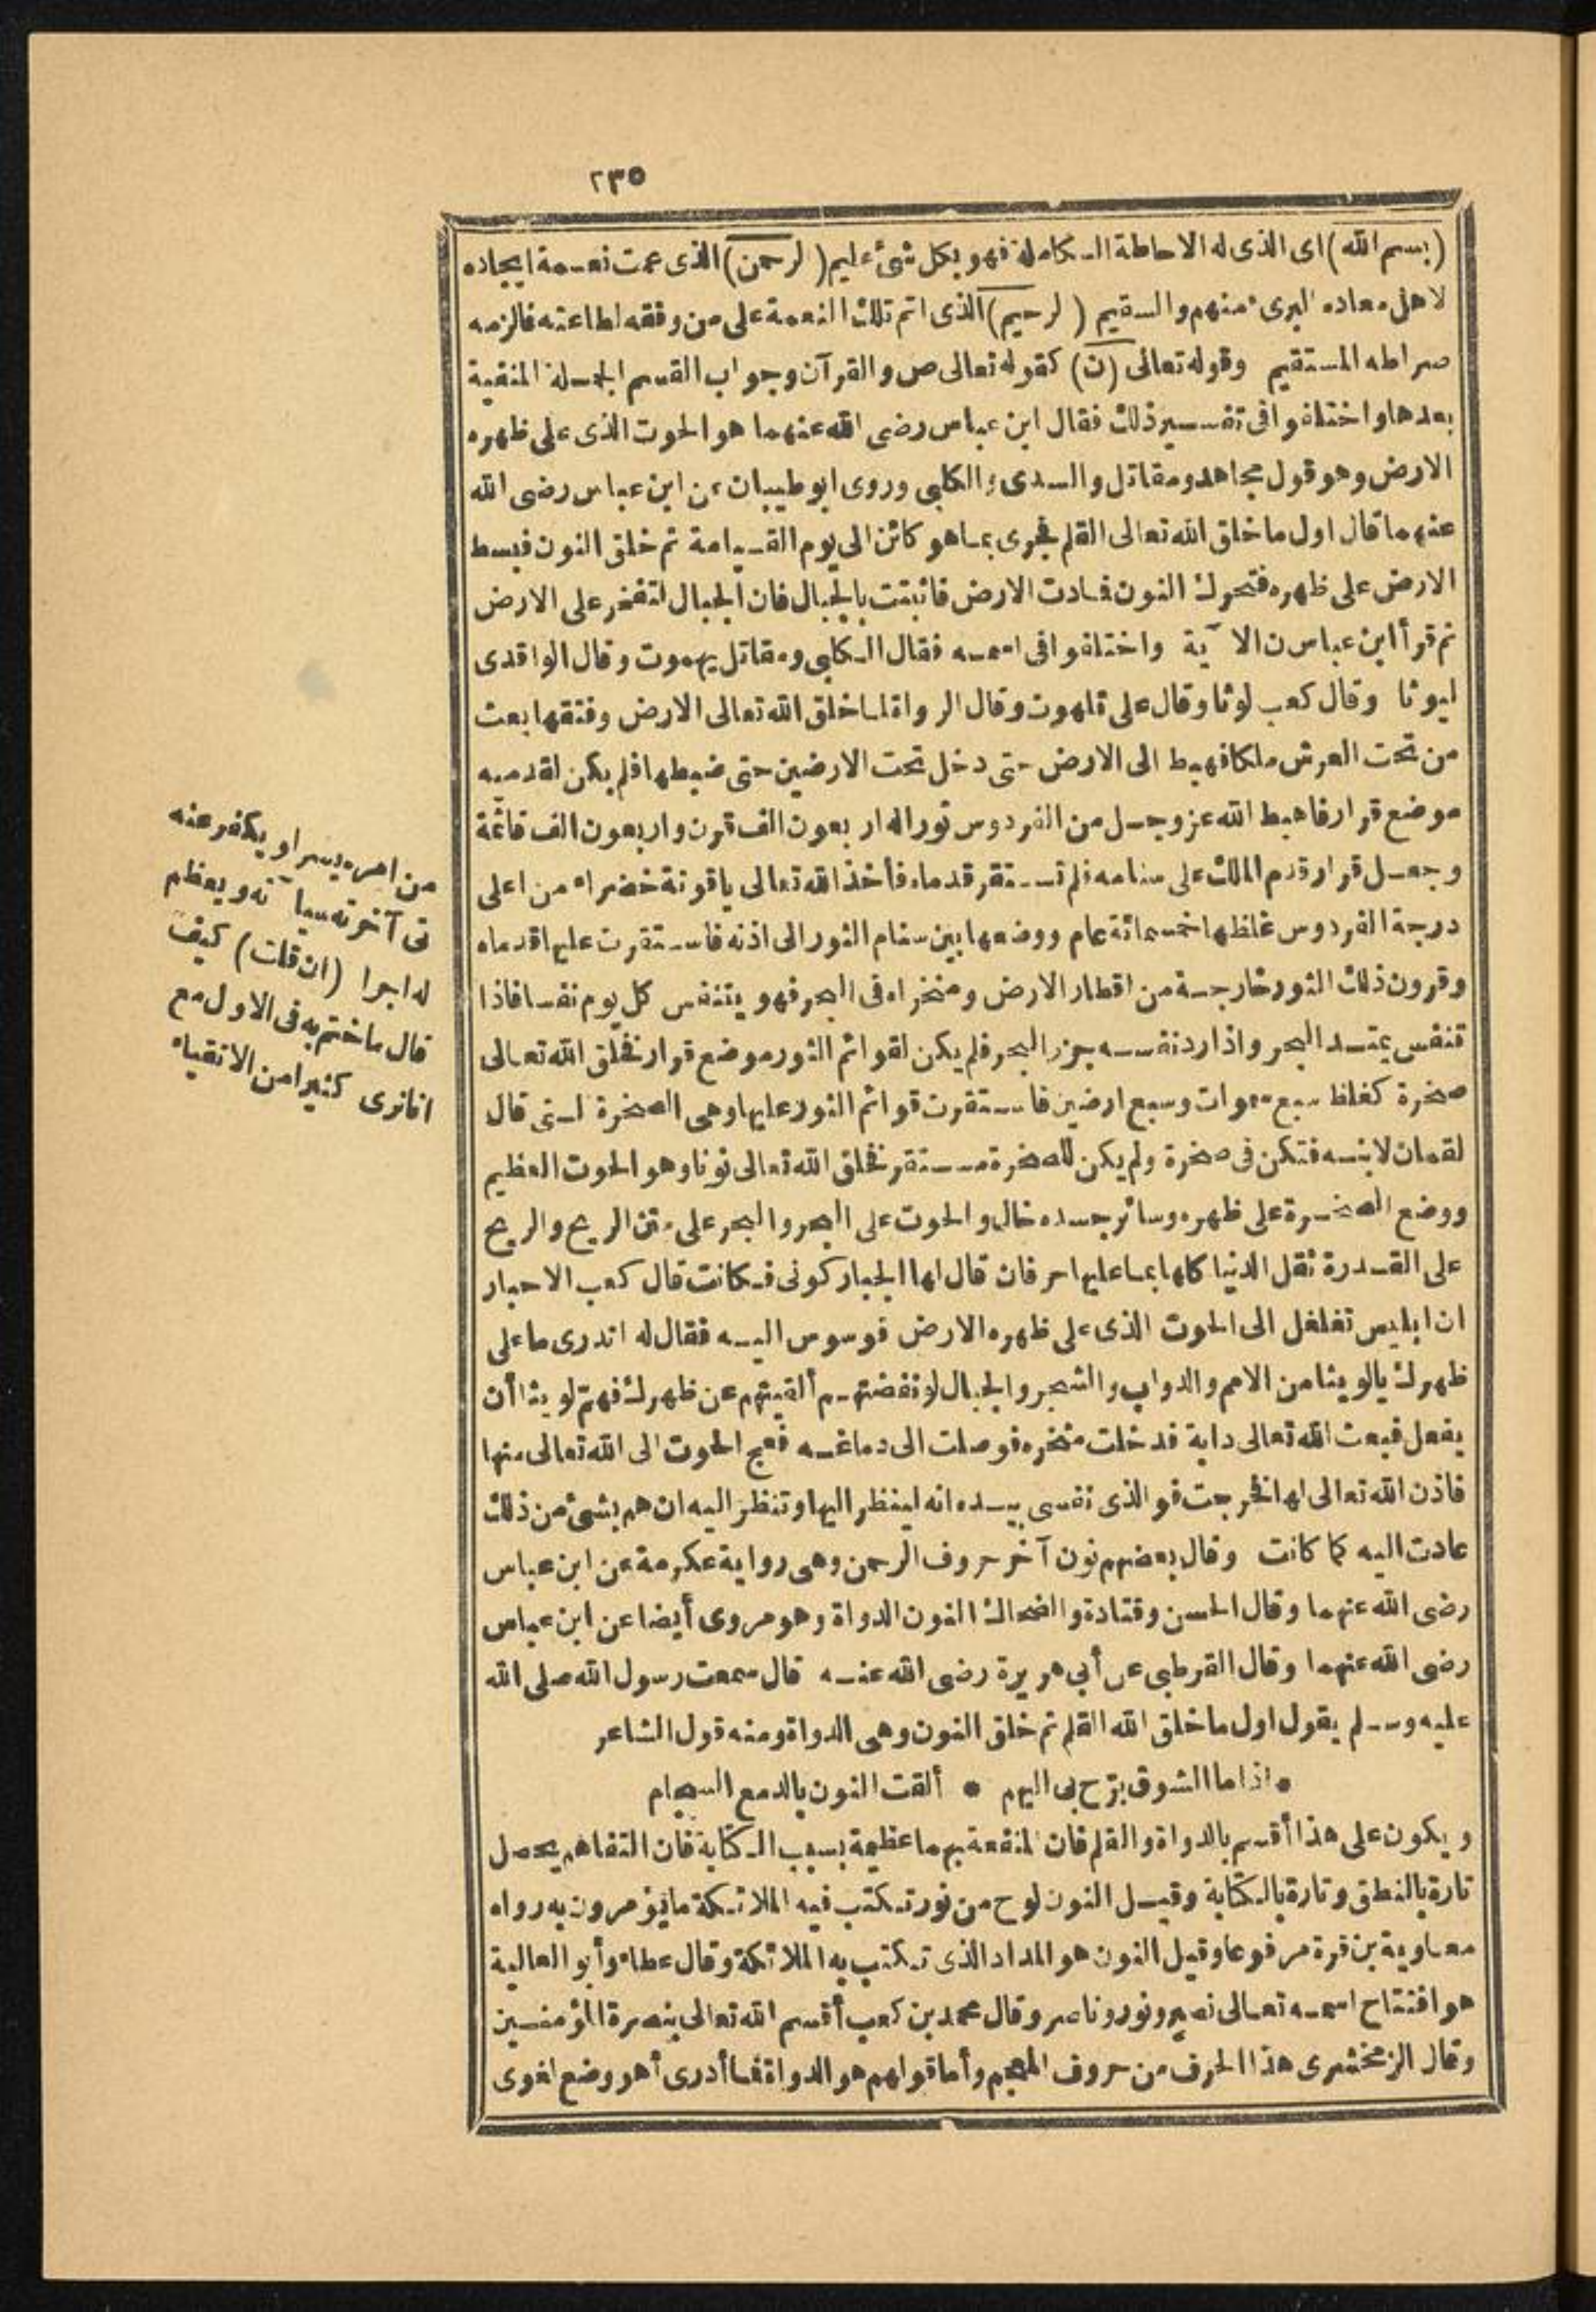 ٢٣٥
(بسم الله) اى الذى له الاحاطة الكاملة فهو بكل شئ عليم (الرحمن) الذى عمت نعمة ايجاده
لاهل معاده البرىء منهم والسقيم (الرحيم) الذى اتم تلك النعمة على من وفقه لطاعته فالزمه
صراطه المستقيم وقوله تعالى (ن) كقوله تعالى ص والقرآن وجواب القسم الجملة المنفية
بعدها واختلفوا فى تفسير ذلك فقال ابن عباس رضى الله عنهما هو الحوت الذى على ظهره
الارض وهو قول مجاهد ومقاتل والسدى والكلبى وروى ابو طيبان عن ابن عباس رضى الله
عنهما قال اول ما خلق الله تعالى القلم فجرى بما هو كائن الى يوم القيامة ثم خلق النون فبسط
الارض على ظهره فتحرك النون فمادت الارض فاثبتت بالجبال فان الجبال لتفخر على الارض
ثم قرأ ابن عباس ن الآية واختلفوا فى اسمه فقال الكلبى ومقاتل يهموت وقال الواقدى
ليوثا وقال كعب لوثا وقال على قلهوت وقال الرواة لما خلق الله تعالى الارض وفتقها بعث
من تحت العرش ملكا فهبط الى الارض حتى دخل تحت الارضين حتى ضبطها فلم يكن لقدميه
موضع قرار فاهبط الله عز وجل من الفردوس ثورا له اربعون الف قرن واربعون الف قائمة
وجعل قرار قدم الملك على سنامه فلم تستقر قدماه فأخذ الله تعالى ياقوتة خضراء من اعلى
درجة الفردوس غلظها خمسمائة عام ووضعها بين سنام الثور الى اذنه فاستقرت عليها قدماه
وقرون ذلك الثور خارجة من اقطار الارض ومنخراه فى البحر فهو يتنفس كل يوم نفسا فاذا
تنفس يمتد البحر واذا رد نفسه جزر البحر فلم يكن لقوائم الثور موضع قرار فخلق الله تعالى
صخرة كغلظ سبع سموات وسبع ارضين فاستقرت قوائم الثور عليها وهى الصخرة التى قال
لقمان لابنه فتكن فى صخرة ولم يكن للصخرة مستقر فخلق الله تعالى نونا وهو الحوت العظيم
ووضع الصخرة على ظهره وسائر جسده خال والحوت على البحر والبحر على متن الريح والريح
على القدرة ثقل الدنيا كلها بما عليها حرفان قال لها الجبار كونى فكانت قال كعب الاحبار
ان ابليس تغلغل الى الحوت الذى على ظهره الارض فوسوس اليه فقال له اتدرى ما على
ظهرك يالويثا من الامم والدواب والشجر والجبال لو نفضتهم ألقيتهم عن ظهرك فهم لويثا أن
يفعل فبعث الله تعالى دابة فدخلت منخره فوصلت الى دماغه فعج الحوت الى الله تعالى منها
فاذن الله تعالى لها فخرجت فوالذى نفسى بيده انه لينظر اليها وتنظر اليه ان هم بشئ من ذلك
عادت اليه كما كانت وقال بعضهم نون آخر حروف الرحمن وهى رواية عكرمة عن ابن عباس
رضى الله عنهما وقال الحسن وقتادة والضحاك النون الدواة وهو مروى أيضا عن ابن عباس
رضى الله عنهما وقال القرطبى عن أبى هريرة رضى الله عنه قال سمعت رسول الله صلى الله
عليه وسلم يقول اول ما خلق الله القلم ثم خلق النون وهى الدواة ومنه قول الشاعر
• اذا ما الشوق برّح بى اليهم • ألقت النون بالدمع السجام
ويكون على هذا أقسم بالدواة والقلم فان المنفعة بهما عظيمة بسبب الكتابة فان التفاهم يحصل
تارة بالنطق وتارة بالكتابة وقيل النون لوح من نور تكتب فيه الملائكة ما يؤمرون به رواه
معاوية بن قرة مرفوعا وقيل النون هو المداد الذى تكتب به الملائكة وقال عطاء وأبو العالية
هو افتتاح اسمه تعالى نصير ونور وناصر وقال محمد بن كعب أقسم الله تعالى بنصرة المؤمنين
وقال الزمخشرى هذا الحرف من حروف المعجم وأما قولهم هو الدواة فما أدرى أهو وضع لغوى
من امره يسرا ويكفر عنه
فى آخرته سيآته ويعظم
له اجرا (ان قلت) كيف
قال ما ختم به فى الاول مع
انا نرى كثيرا من الاتقياء